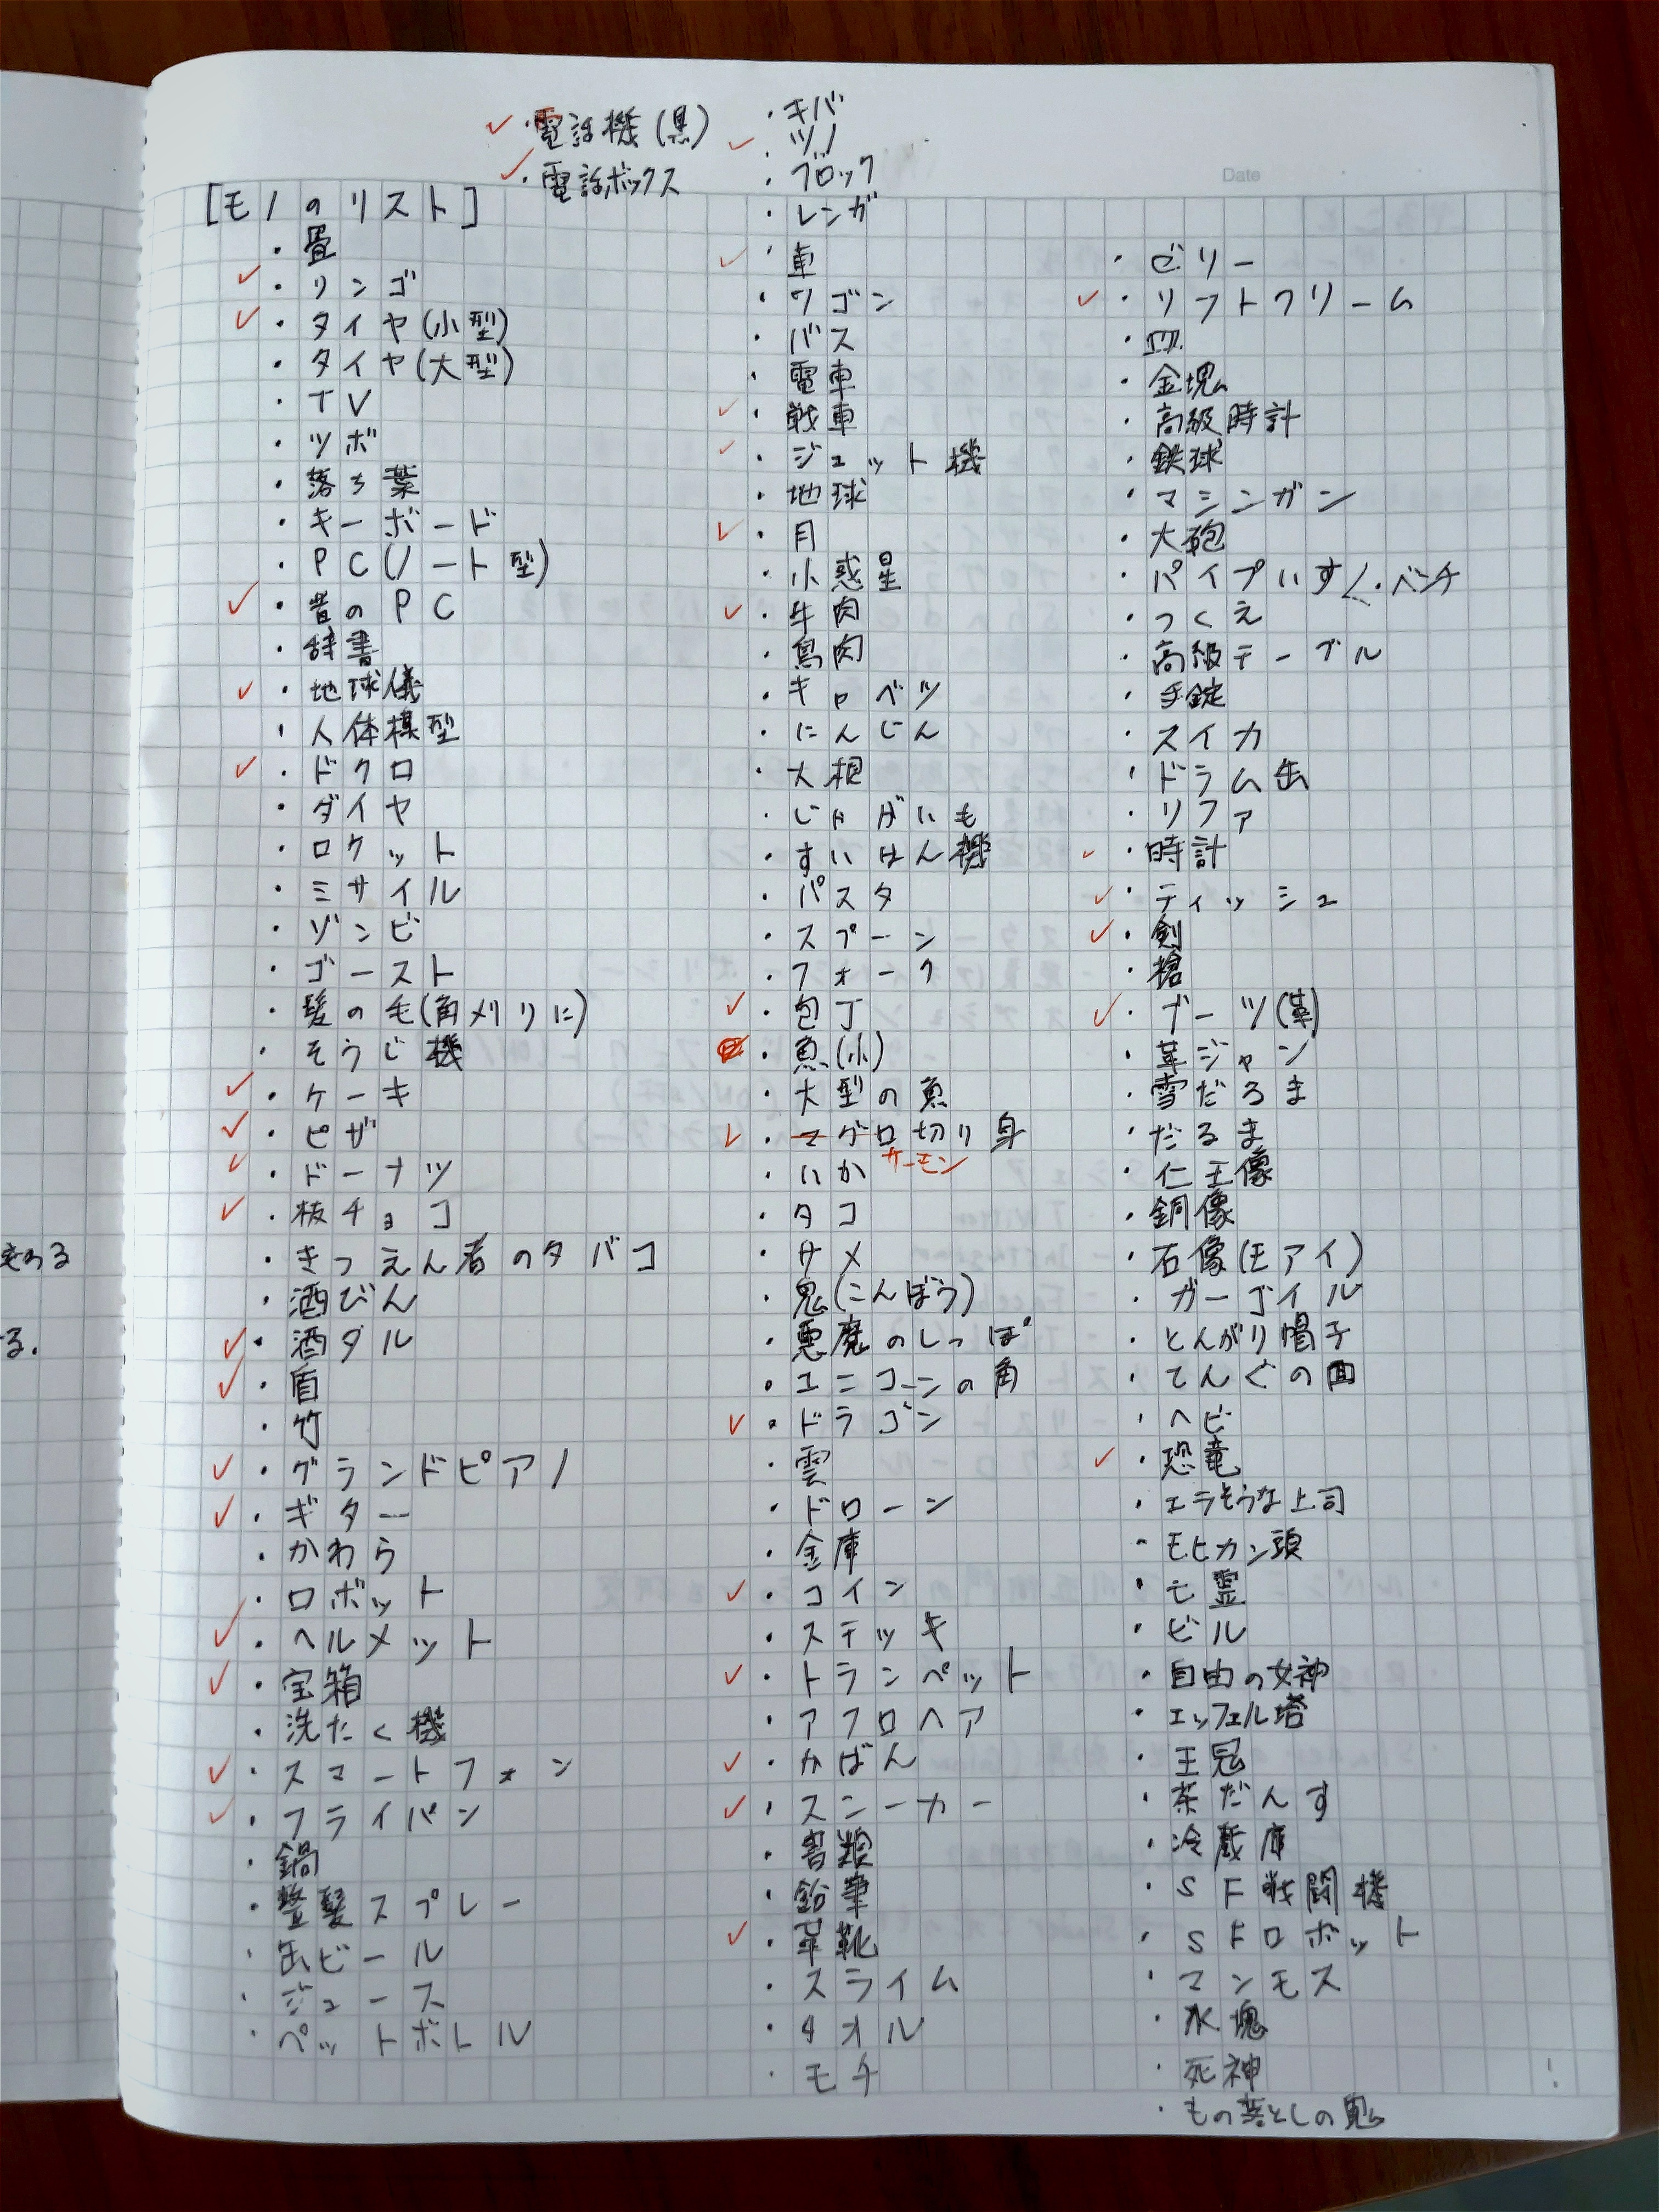 ✓・電話機(黒)
✓・電話ボックス
[モノのリスト]
・畳
✓・リンゴ
✓・タイヤ(小型)
・タイヤ(大型)
・TV
・ツボ
・落ち葉
・キーボード
・PC(ノート型)
✓・昔のPC
・辞書
✓・地球儀
・人体模型
✓・ドクロ
・ダイヤ
・ロケット
・ミサイル
・ゾンビ
・ゴースト
・髪の毛(角刈りに)
・そうじ機
✓・ケーキ
✓・ピザ
✓・ドーナツ
✓・板チョコ
・きつえん者のタバコ
・酒びん
✓・酒ダル
✓・盾
・竹
✓・グランドピアノ
✓・ギター
・かわら
・ロボット
✓・ヘルメット
✓・宝箱
・洗たく機
✓・スマートフォン
✓・フライパン
・鍋
・整髪スプレー
・缶ビール
・ジュース
・ペットボトル
・キバ
✓・ツノ
・ブロック
・レンガ
✓・車
・ワゴン
・バス
・電車
✓・戦車
✓・ジェット機
・地球
✓・月
・小惑星
✓・牛肉
・鳥肉
・キャベツ
・にんじん
・大根
・じゃがいも
・すいはん機
・パスタ
・スプーン
・フォーク
✓・包丁
・魚(小)
・大型の魚
✓・マグロ切り身
サーモン
・いか
・タコ
・サメ
・鬼(こんぼう)
・悪魔のしっぽ
・ユニコーンの角
✓・ドラゴン
・雲
・ドローン
・金庫
✓・コイン
・ステッキ
✓・トランペット
・アフロヘア
✓・かばん
✓・スニーカー
・書類
・鉛筆
✓・革靴
・スライム
・タオル
・モチ
Date
・ゼリー
✓・ソフトクリーム
・皿
・金塊
・高級時計
・鉄球
・マシンガン
・大砲
・パイプいす ・ベンチ
・つくえ
・高級テーブル
・手錠
・スイカ
・ドラム缶
・ソファ
✓・時計
✓・ティッシュ
✓・剣
・槍
✓・ブーツ(革)
・革ジャン
・雪だるま
・だるま
・仁王像
・銅像
・石像(モアイ)
・ガーゴイル
・とんがり帽子
・てんぐの面
・ヘビ
✓・恐竜
・エラそうな上司
・モヒカン頭
・亡霊
・ビル
・自由の女神
・エッフェル塔
・王冠
・茶だんす
・冷蔵庫
・SF戦闘機
・SFロボット
・マンモス
・氷塊
・死神
・もの落としの鬼
る.